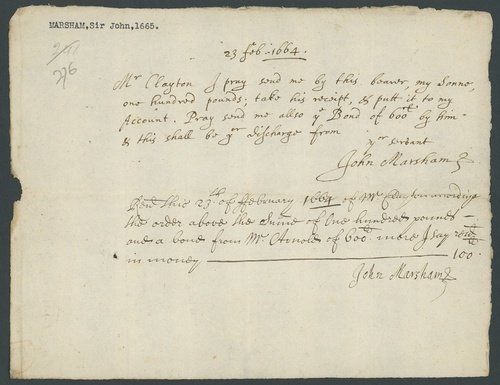 MARSHAM, Sir John, 1665.
276
23 Feb 1664.
Mr Clayton I pray send me by this bearer my Sonne,
one hundred pounds; take his receipt, & putt it to my
Account. Pray send me allso ye Bond of 600li by him
& this shall be yor discharge from
yor servant
John Marsham
Recd this 23th of ffebruary 1664 of Mr Clayton according
the order above the Sume of One hundred pounds –
and a bond from Mr Arnold of 600li more I say recd
in money 100
John Marsham